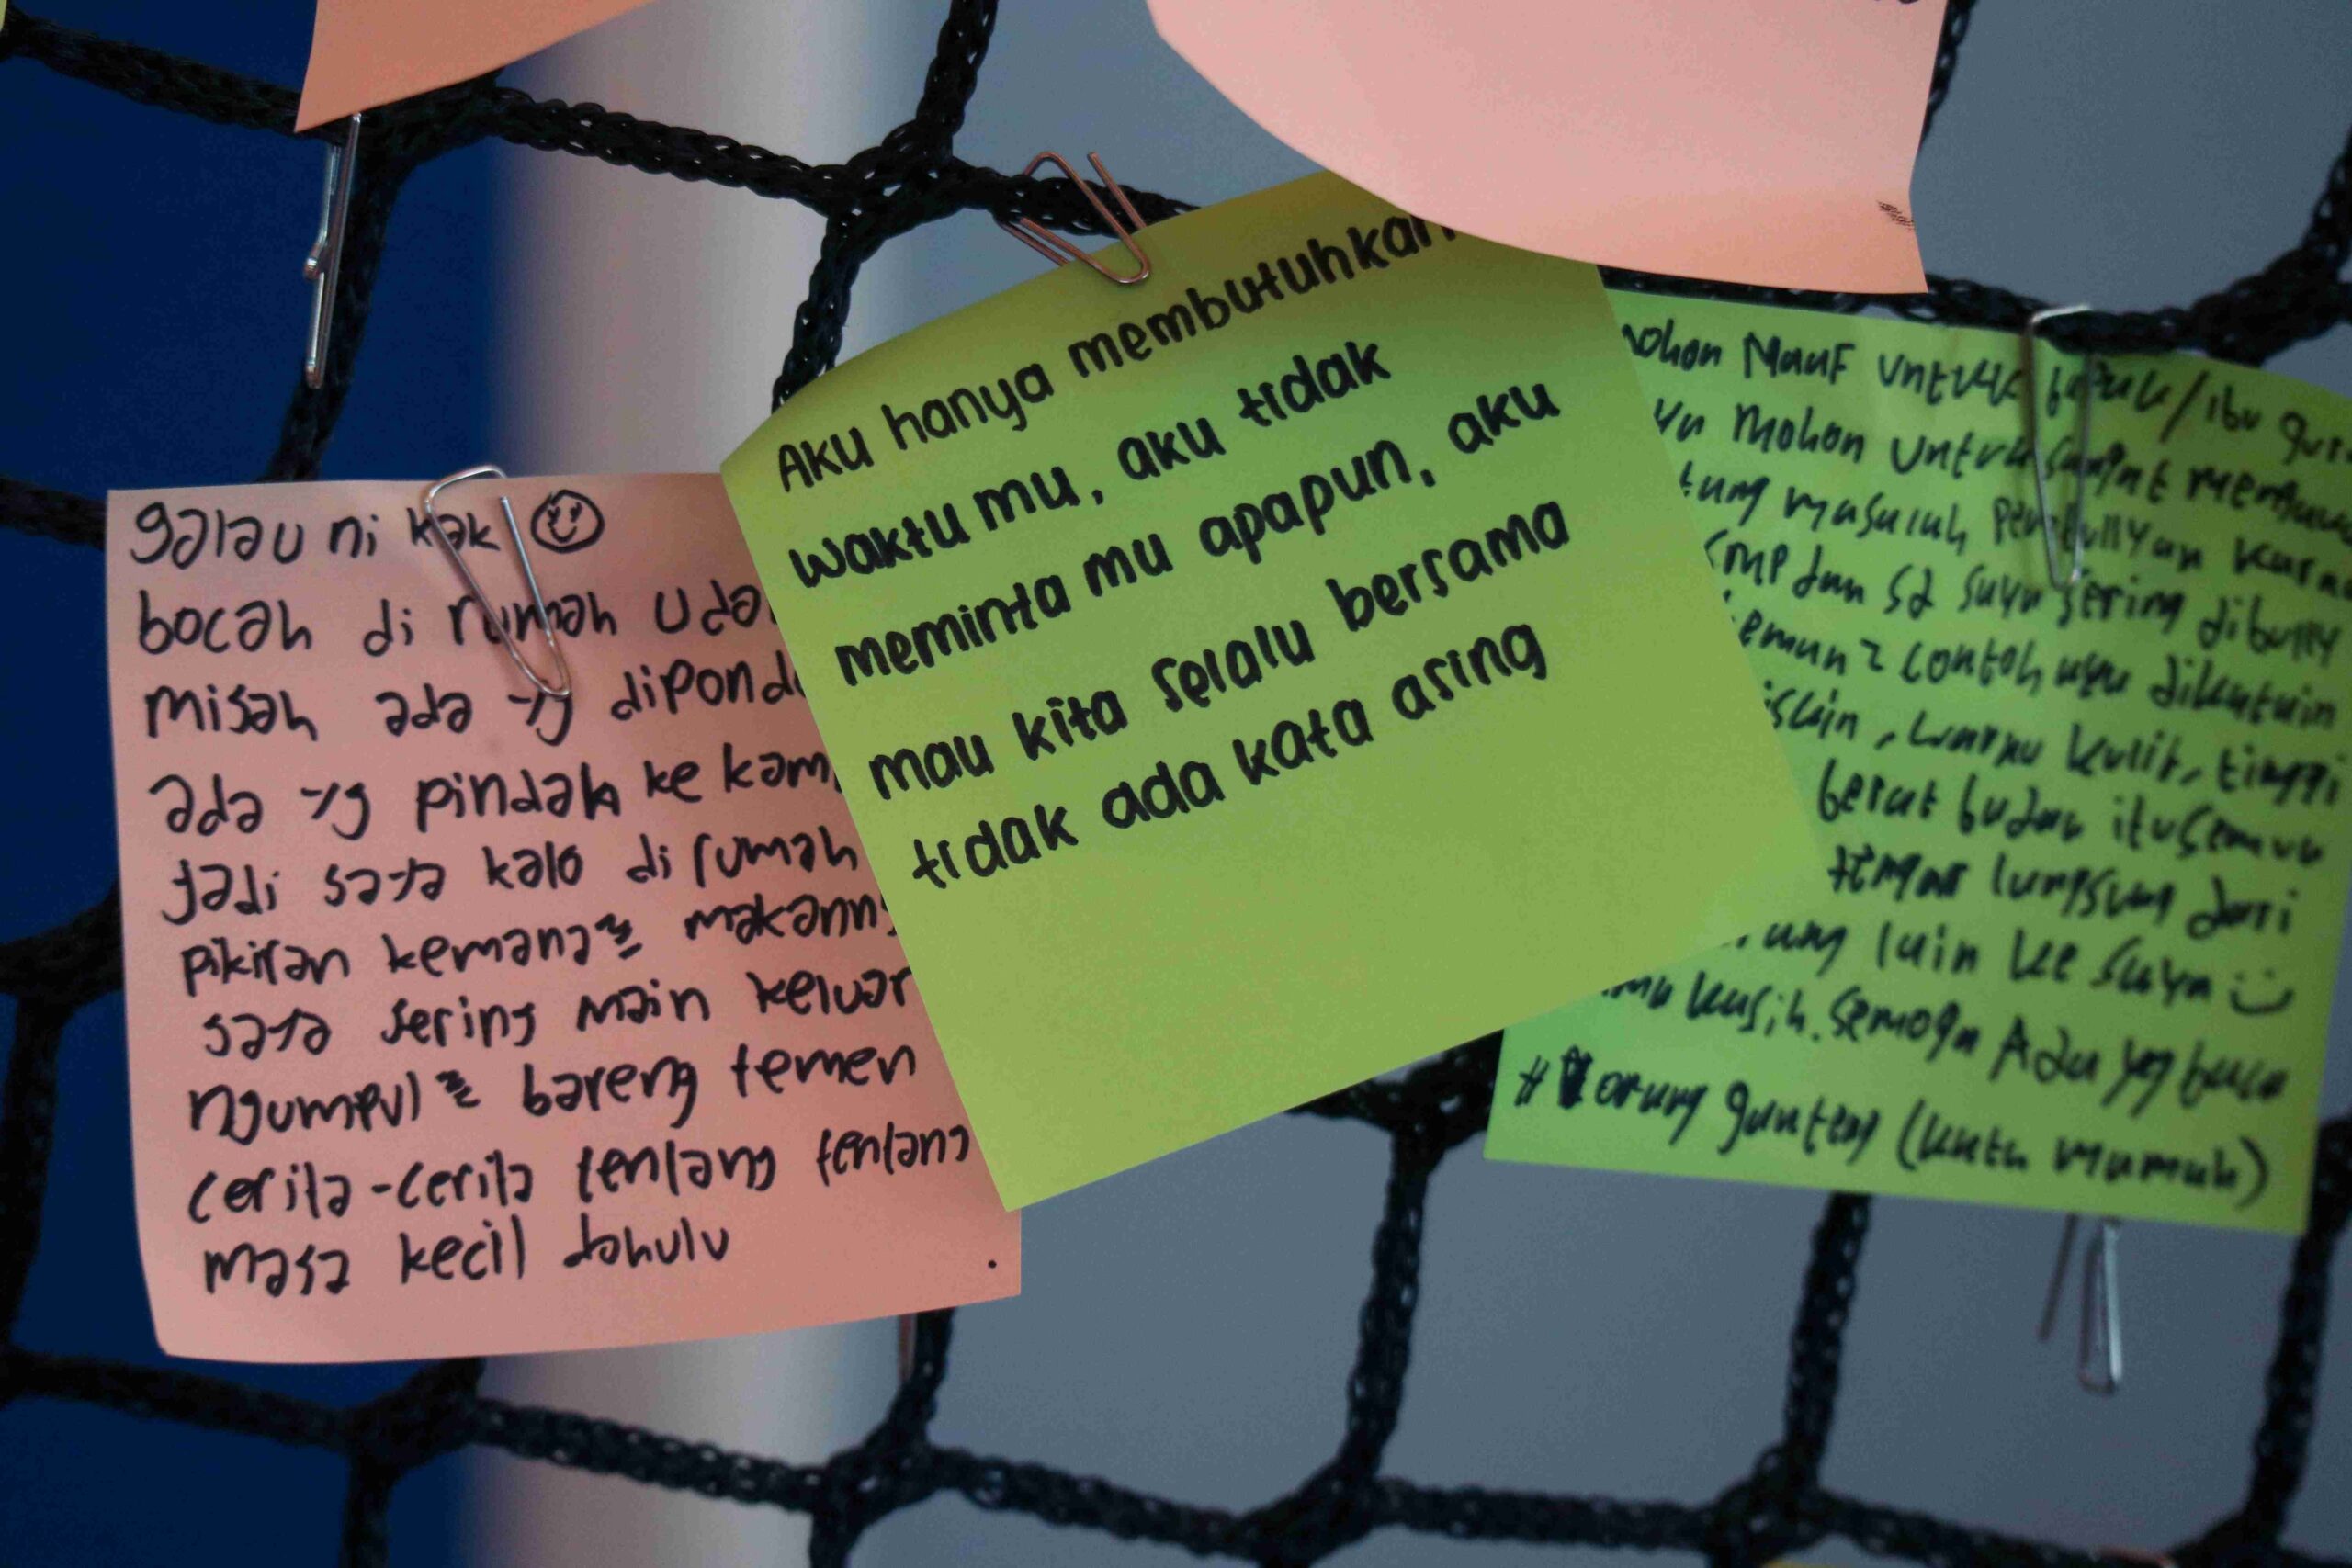 galau ni kak
bocah di rumah
misah ada yg
ada yg pindah ke
jadi saya kalo di rumah
pikiran kemana2
saya sering main keluar
ngumpul2 bareng temen
cerita-cerita tentang tentang
masa kecil dahulu
Aku hanya membutuhkan
waktu mu, aku tidak
meminta mu apapun, aku
mau kita selalu bersama
tidak ada kata asing
Mohon Maaf untuk bapak/ibu
mohon untuk
masalah pembullyan
SMP dan SD saya sering dibully
2 contoh nya dikatain
warna kulit, tinggi
berat badan itu semua
langsung dari
lain ke saya
kasih. semoga Ada yg baca
# orang ganteng (kata mamah)